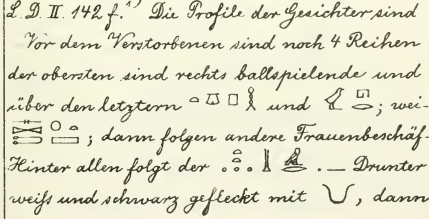 L. D. II. 142 f. 1) Die Profile der Gesichter sind
Vor dem Verstorbenen sind noch 4 Reihen
der obersten sind rechts ballspielende und
über den letztern und ; wei-
; dann folgen andere Frauenbeschäf-
Hinter allen folgt der . — Drunter
weiß und schwarz gefleckt mit , dann